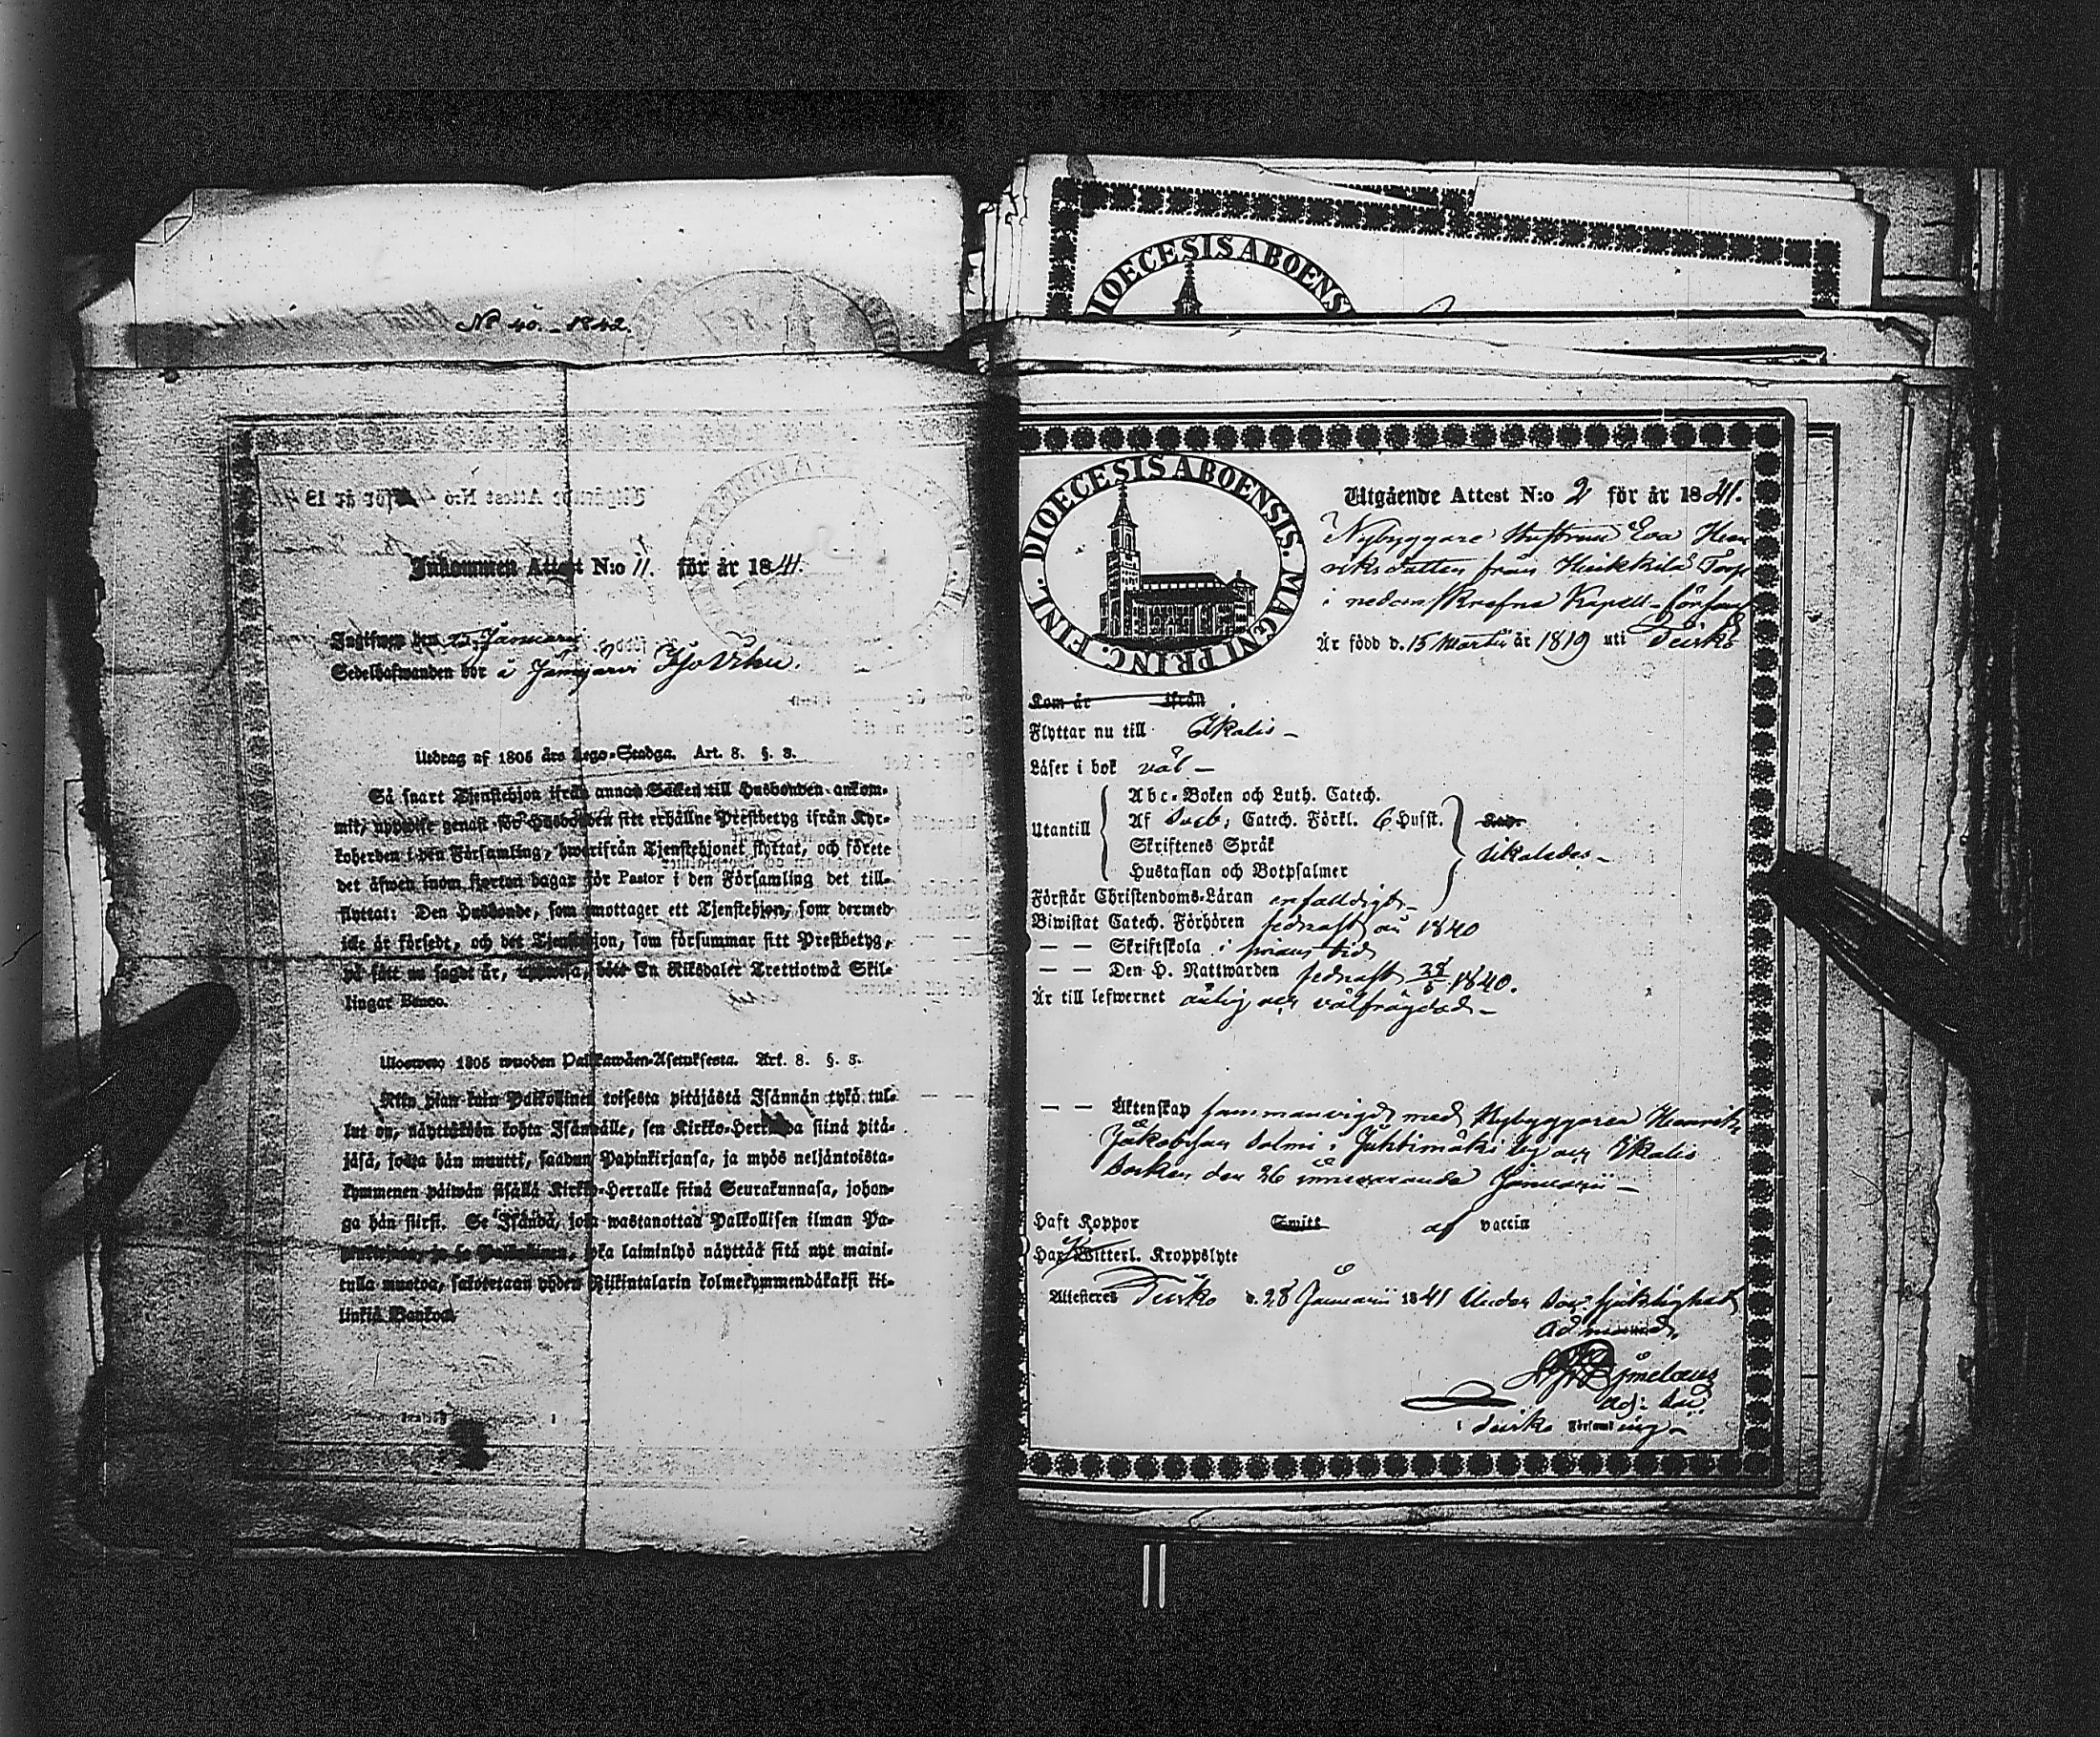 Nº 40. – 1842.
Inkommen Attest N:o 11. för år 1841.
Sedelhafwanden bor å Jämijärvi
Utdrag af 1805 års Lego-Stadga. Art. 8. §. 3.
Så snart Tjenstehjon ifrån annan Socken till Husbonden ankom-
mit, uppwise genast för Husbonden sitt erhållne Prestbetyg ifrån Kyr-
koherden i den Församling, hwarifrån Tjenstehjonet flyttat, och förete
det äfwen inom fjorton dagar för Pastor i den Församling det till-
flyttat: Den Husbonde, som emottager ett Tjenstehjon, som dermed
icke är försedt, och det Tjenstehjon, som försummar sitt Prestbetyg,
på sätt nu sagdt är, uppwisa, böte En Riksdaler Trettiotwå Skil-
lingar Banco.
Uloswero 1805 wuoden Palkawäen-Asetuksesta. Art. 8. §. 3.
Niin pian kuin Palkollinen toisesta pitäjästä Isännän tykö tul-
lut on, näyttäköön kohta Isännälle, sen Kirkko-Herralda siinä pitä-
jäsä, josta hän muutti, saadun Papinkirjansa, ja myös neljäntoista-
kymmenen päiwän sisällä Kirkko-Herralle siinä Seurakunnasa, johon-
ga hän siirsi. Se Isändä, joka wastanottaa Palkollisen ilman Pa-
pinkirjata, ja se Palkollinen, joka laiminlyö näyttää sitä nyt maini-
tulla muotoa, sakotetaan yhden Riikintalarin kolmekymmendäkaksi kil-
linkiä Bankoa.
DIOECESIS ABOENS
DIOECESIS ABOENSIS. MAGNI PRINC. FINL.
Utgående Attest N:o 2 för år 1841.
Nybyggare Hustrun Eva Hen
riksdotter från Heikkilä Torp
i nedanskrefne Kapell-församl
Är född d. 15 Martii år 1819 uti
Kom år ifrån
Flyttar nu till Ikalis –
Läser i bok väl –
Utantill
Abc-Boken och Luth. Catech.
Af Sveb, Catech. Förkl. 6 Hufst.
Skriftenes Språk
Hustaflan och Botpsalmer
likaledes –
Förstår Christendoms-Läran enfaldigt –
Biwistat Catech. Förhören sednast år 1840
– – Skriftskola i sinom tid
– – Den H. Nattwarden sednast 1840.
Är till lefwernet ärlig och välfrägdad –
– – Äktenskap sammanvigd med Nybyggaren Henrik
Jakobsson Salmi i Juhtimäki by och Ikalis
Socken den 26 innevarande Januarii –
Haft Koppor Smitt af vaccin
Har Witterl. Kroppslyte
Attesteras d. 28 Januarii 1841 Under Past. sjuklighet
Församling –